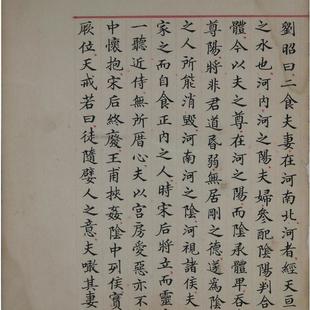 劉昭曰二食夫妻在河南北河者經天亘
之水也河內河之陽夫婦參配陰陽判合
體今以夫之尊在河之陽而陰承體卑吞
尊陽將非君道昬弱無居剛之德遂為陰
之人所能消毀河南河之陰河視諸侯夫
家之而自食正內之人時宋后將立而靈
一聽近侍無所厝心夫以宮房愛惡亦不
中懷抱宋后終廢王甫挾姦陰中列侯實
厥位天戒若曰徒隨嬖人之意夫噉其妻